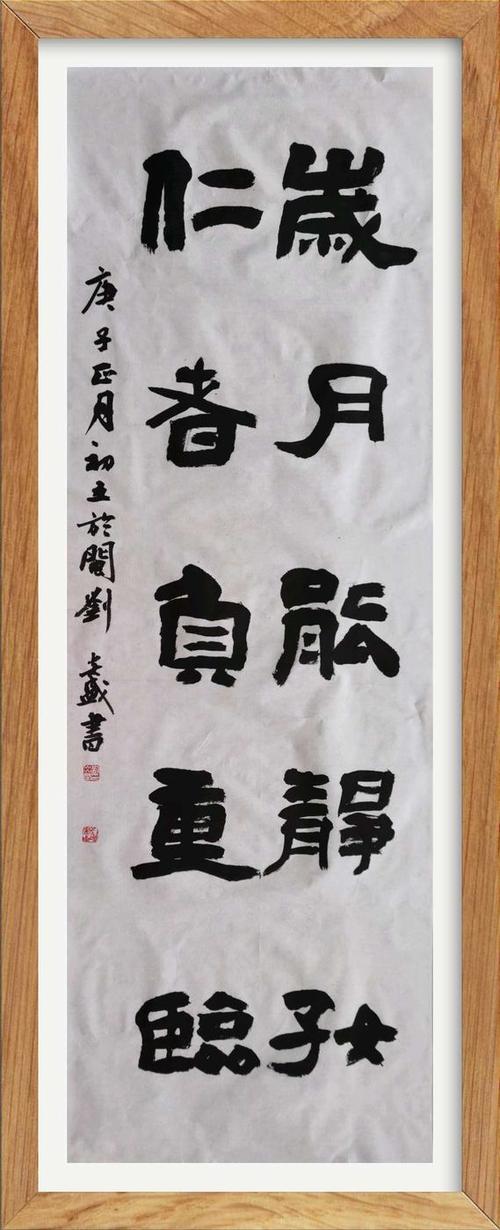 歲月能靜好
仁者負重臨
庚子正月初五於閩劉盛書